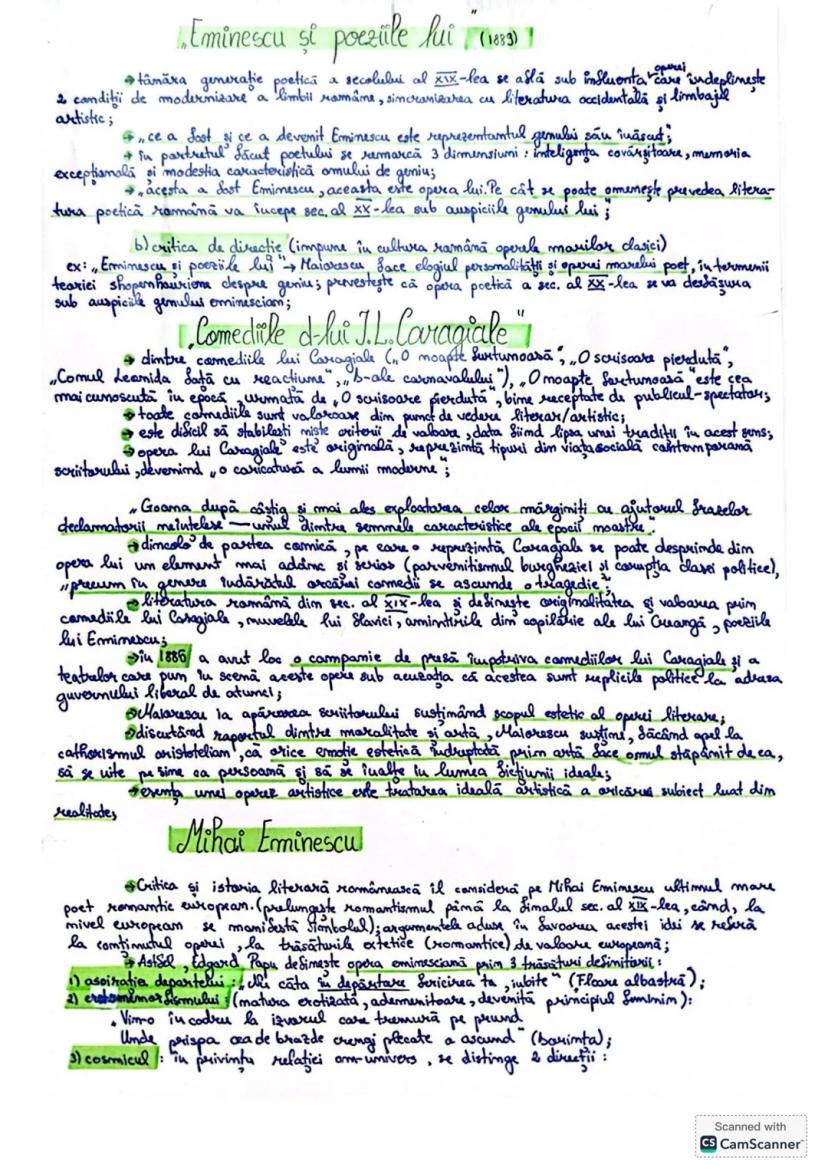 „Eminescu și poeziile lui" (1889)
→ tânăra generație poetică a secolului al XIX-lea se află sub influența operei care îndeplinește
2 condiții de modernizare a limbii române, sincronizarea cu literatura occidentală și limbajul
artistic;
→ „ce a fost și ce a devenit Eminescu este reprezentantul geniului său înăscut";
→ în portretul făcut poetului se remarcă 3 dimensiuni: inteligența covârșitoare, memoria
excepțională și modestia caracteristică omului de geniu;
→ „acesta a fost Eminescu, aceasta este opera lui. Pe cât se poate omenește prevedea litera-
tura poetică română va începe sec. al XX-lea sub auspiciile geniului lui";
b) critica de direcție (impune în cultura română operele marilor clasici)
ex: „Eminescu și poeziile lui" → Maiorescu face elogiul personalității și operei marelui poet, în termenii
teoriei shopenhauriene despre geniu; prevestește că opera poetică a sec. al XX-lea se va desfășura
sub auspiciile geniului eminescian;
„Comediile d-lui I.L. Caragiale"
→ dintre comediile lui Caragiale („O noapte furtunoasă", „O scrisoare pierdută",
„Conul Leonida față cu reacțiune", „D-ale carnavalului"), „O noapte furtunoasă" este cea
mai cunoscută în epocă, urmată de „O scrisoare pierdută", bine receptate de publicul-spectator;
→ toate comediile sunt valoroase din punct de vedere literar/artistic;
→ este dificil să stabilești niște criterii de valoare, data fiind lipsa unei tradiții în acest sens;
→ opera lui Caragiale este originală, reprezintă tipuri din viața socială contemporană
scriitorului, devenind „o caricatură a lumii moderne";
„Goana după câștig și mai ales exploatarea celor mărginiți cu ajutorul frazelor
declamatorii neînțelese — unul dintre semnele caracteristice ale epocii noastre".
→ dincolo de partea comică, pe care o reprezintă Caragiale se poate desprinde din
opera lui un element mai adânc și serios (parvenitismul burgheziei și corupția clasei politice),
„precum în genere îndărătul oricărei comedii se ascunde o tragedie";
→ literatura română din sec. al XIX-lea își definește originalitatea și valoarea prin
comediile lui Caragiale, nuvelele lui Slavici, amintirile din copilărie ale lui Creangă, poeziile
lui Eminescu;
→ în 1886 a avut loc o campanie de presă împotriva comediilor lui Caragiale și a
teatrelor care pun în scenă aceste opere sub acuzația că acestea sunt replicile politice la adresa
guvernului liberal de atunci;
→ Maiorescu ia apărarea scriitorului susținând scopul estetic al operei literare;
→ discutând raportul dintre moralitate și artă, Maiorescu susține, făcând apel la
catharismul aristotelian, că orice emoție estetică îndreptată prin artă face omul stăpânit de ea,
să se uite pe sine ca persoană și să se înalțe în lumea ficțiunii ideale;
→ esența unei opere artistice este tratarea ideală artistică a oricărui subiect luat din
realitate;
Mihai Eminescu
→ Critica și istoria literară românească îl consideră pe Mihai Eminescu ultimul mare
poet romantic european. (prelungește romantismul până la finalul sec. al XIX-lea, când, la
nivel european se manifestă simbolul); argumentele aduse în favoarea acestei idei se referă
la conținutul operei, la trăsăturile extetice (romantice) de valoare europeană;
→ Astfel, Edgard Papu definește opera eminesciană prin 3 trăsături definitorii:
1) aspirația departelui: „Nu căta în depărtare fericirea ta, iubite" (Floare albastră);
2) (natura erotizată, ademenitoare, devenită principiul feminin):
„Vino în codru la izvorul care tremură pe prund
Unde prispa cea de brazde crengi plecate a ascund" (Dorința);
3) cosmicul: în privința relației om-univers, se distinge 2 direcții:
Scanned with
CS CamScanner